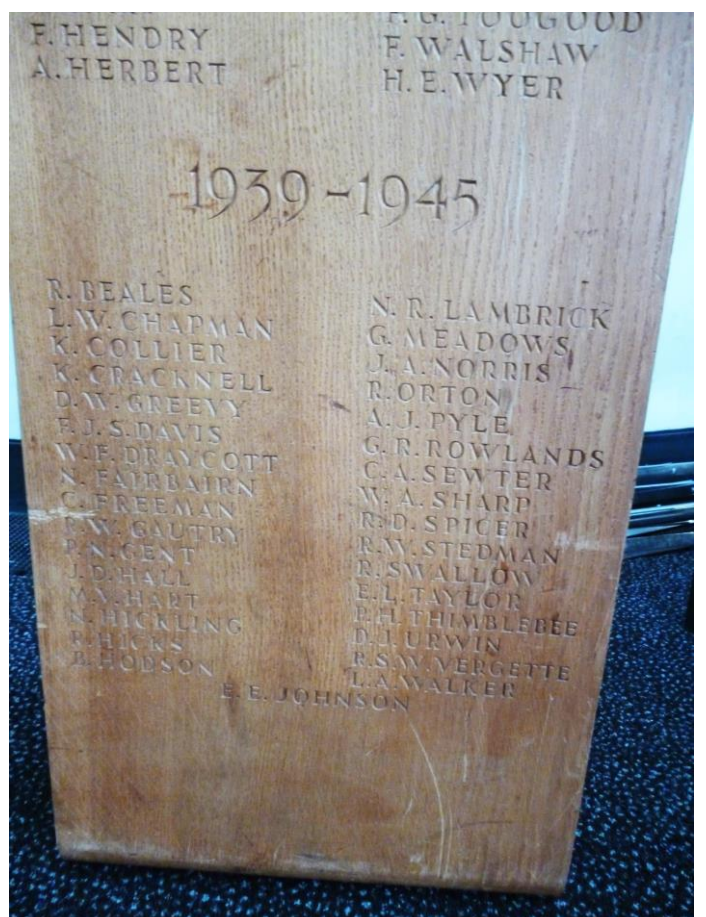 F. HENDRY
A. HERBERT
F. G. TOUGOOD
F. WALSHAW
H. E. WYER
1939-1945
R. BEALES
L. W. CHAPMAN
K. COLLIER
K. CRACKNELL
D. W. GREEVY
F. J. S. DAVIS
W. F. DRAYCOTT
N. FAIRBAIRN
C. FREEMAN
P. W. GAUTRY
P. N. GENT
J. D. HALL
M. V. HART
N. HICKLING
P. HICKS
B. HODSON
N. R. LAMBRICK
G. MEADOWS
J. A. NORRIS
R. ORTON
A. J. PYLE
G. R. ROWLANDS
C. A. SEWTER
W. A. SHARP
R. D. SPICER
R. W. STEDMAN
R. SWALLOW
E. L. TAYLOR
P. H. THIMBLEBEE
D. J. URWIN
R. S. W. VERGETTE
L. A. WALKER
E. E. JOHNSON